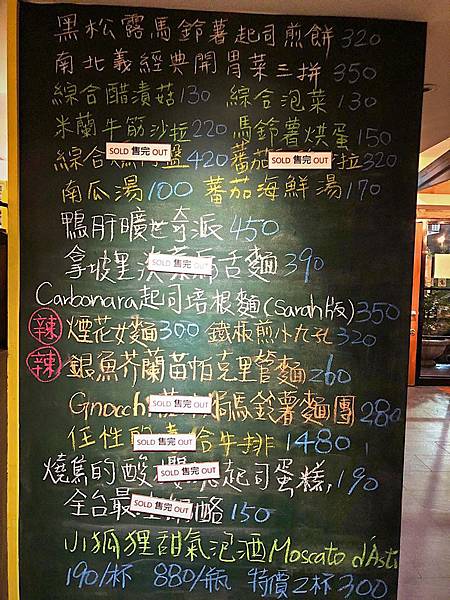 黑松露馬鈴薯起司煎餅320
南北義經典開胃菜三拼350
綜合醋漬菇130 綜合泡菜130
米蘭牛筋沙拉220 馬鈴薯烘蛋150
綜合 SOLD 售完 OUT 盤420 蕃茄 SOLD 售完 OUT 拉320
南瓜湯100 蕃茄海鮮湯170
鴨肝曠世奇派450
拿坡里 SOLD 售完 OUT 舌麵390
Carbonara起司培根麵(Sarah版)350
辣 煙花女麵300 鐵板煎小九孔320
辣 銀魚芥蘭苗帕克里管麵260
Gnocchi SOLD 售完 OUT 馬鈴薯麵團280
任性 SOLD 售完 OUT 牛排1480
燒焦的酸 SOLD 售完 OUT 起司蛋糕,190
全台最 SOLD 售完 OUT 酪150
小狐狸甜氣泡酒Moscato d'Asti
190/杯 880/瓶 特價2杯300